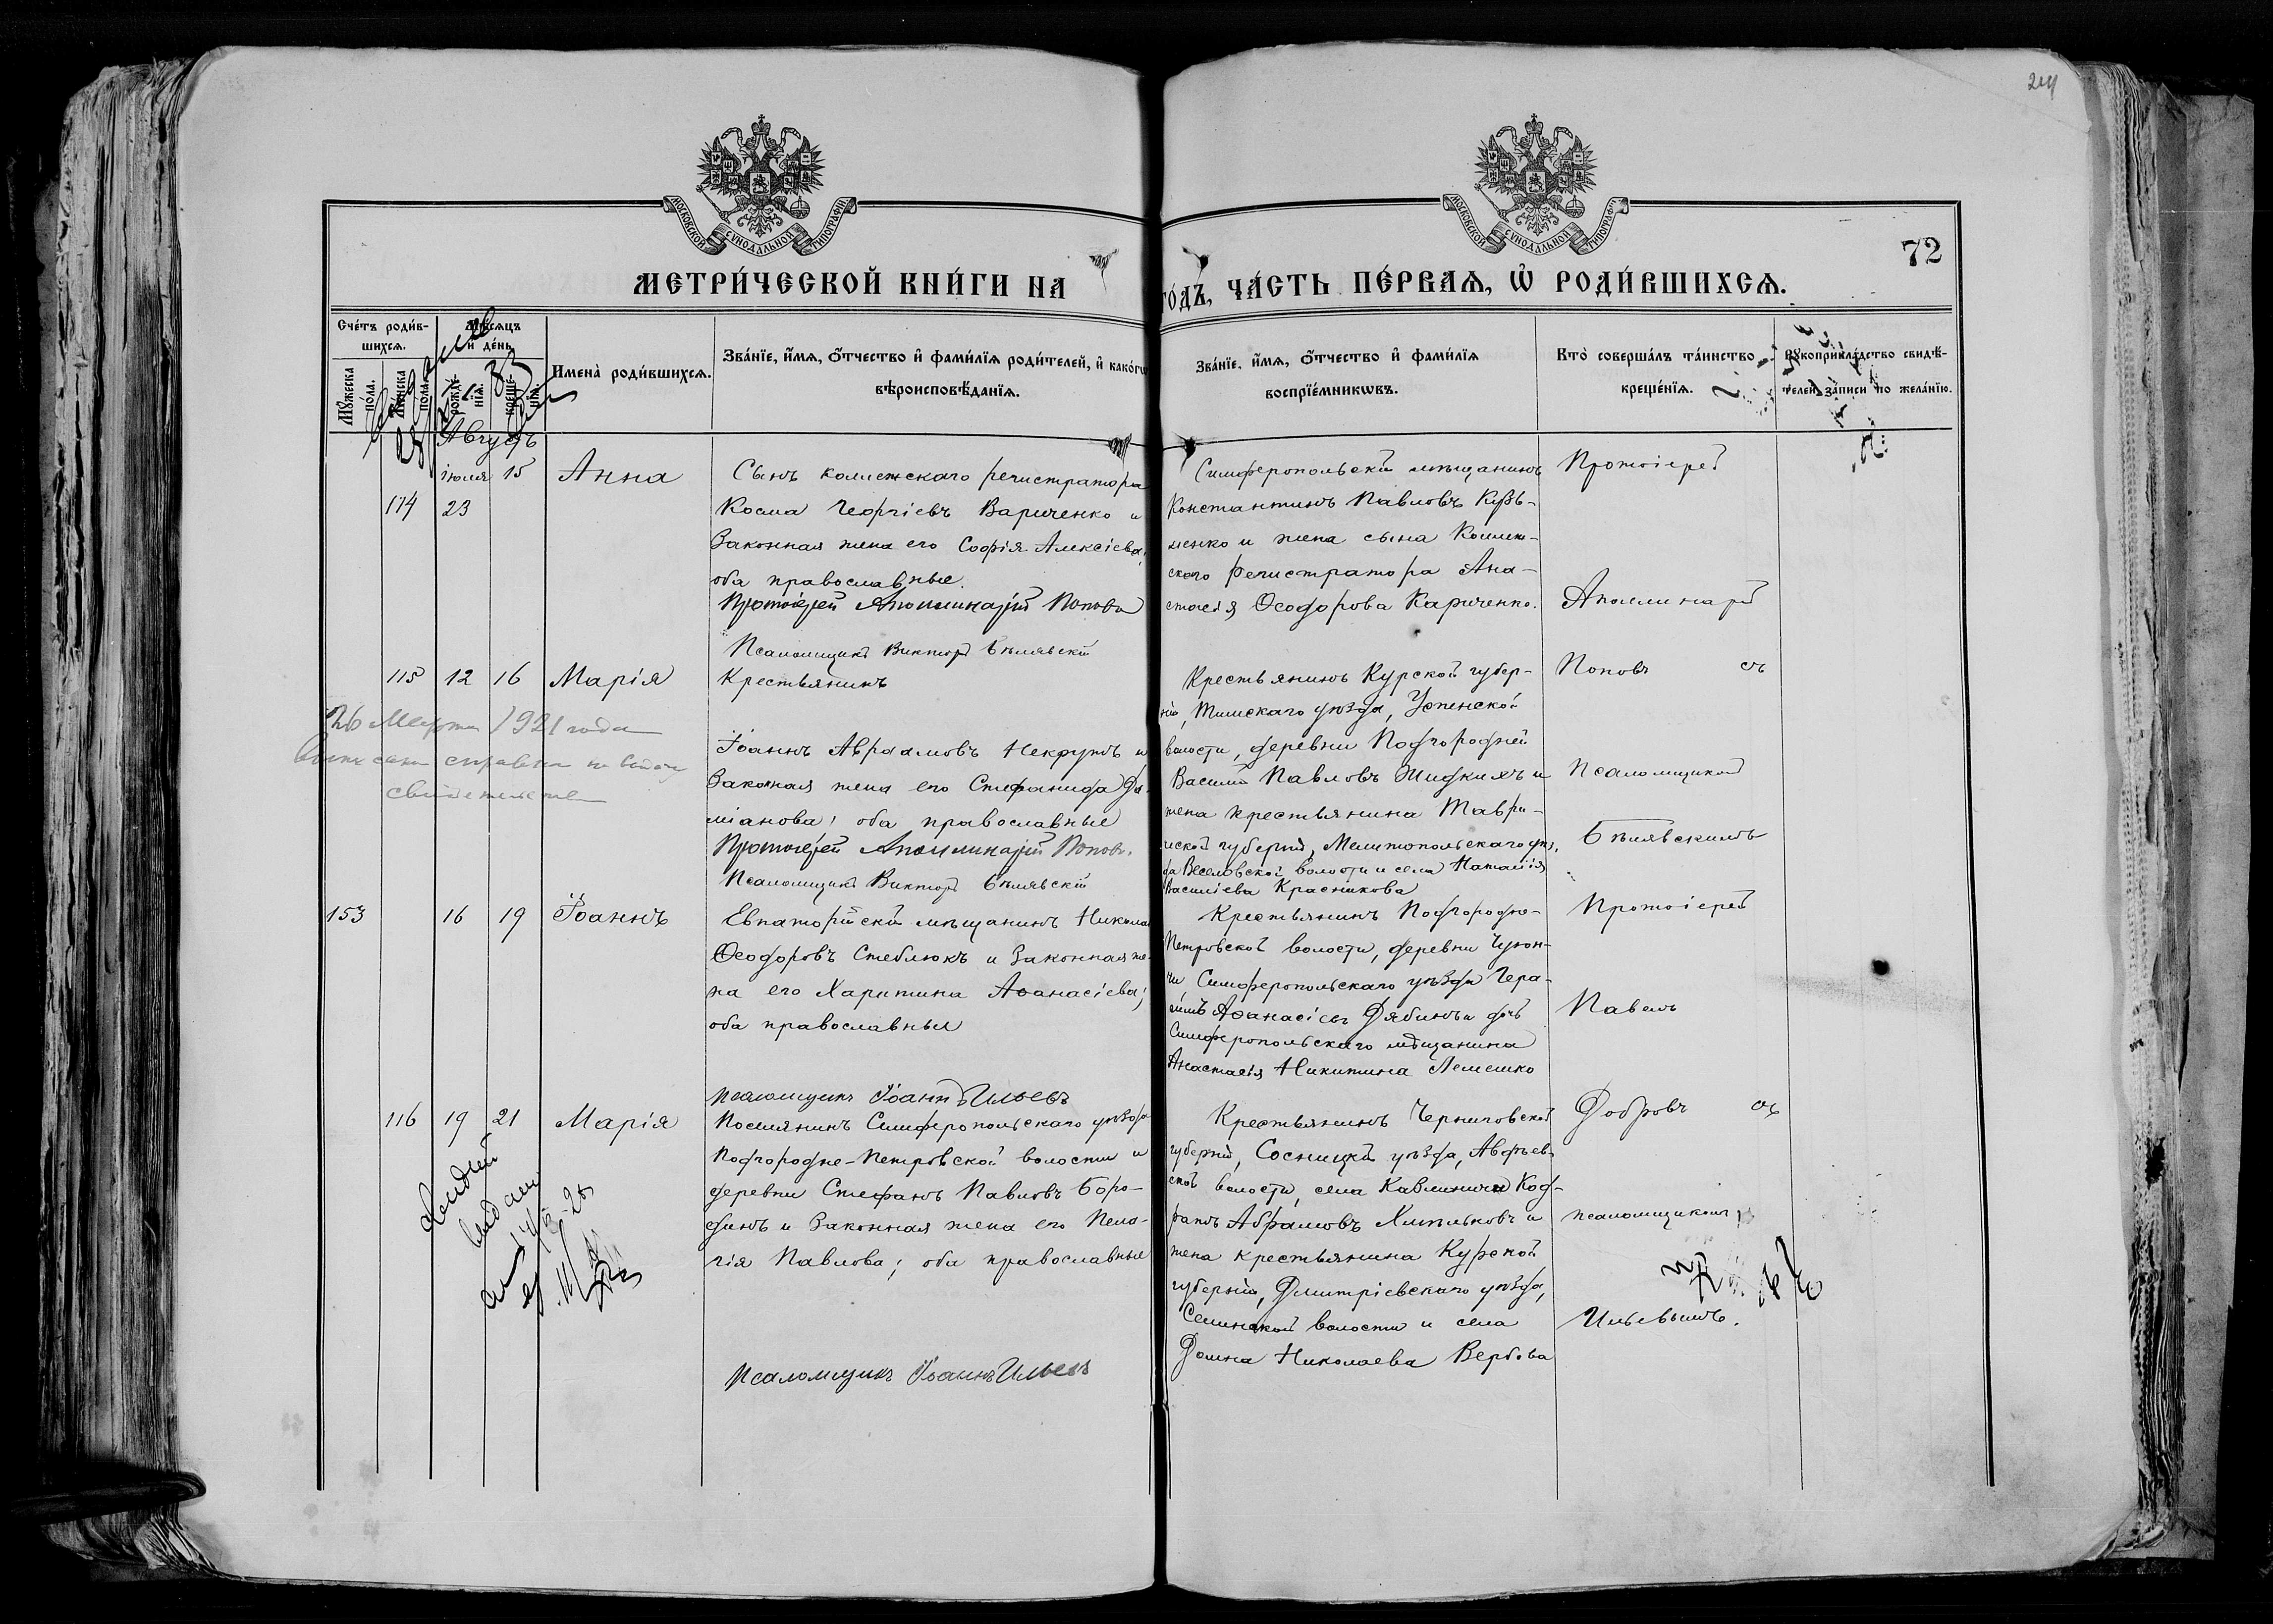 244
МОСКОВСКОЙ СѴНОДАЛЬНОЙ ТИПОГРАФІИ
МОСКОВСКОЙ СѴНОДАЛЬНОЙ ТИПОГРАФІИ
72
МЕТРИ́ЧЕСКОЙ КНИ́ГИ НА
ГО́ДЪ, ЧА́СТЬ ПЕ́РВАѦ, Ѽ РОДИ́ВШИХСѦ.
Сче́тъ роди́в-
шихсѧ.
Мꙋ́жеска
по́ла.
Же́нска
пола.
Мѣ́сѧцъ
и҆ де́нь.
рожде́-
нїѧ.
креще́-
нїѧ.
И҆мена̀ роди́вшихсѧ.
Зва́нїе, и҆́мѧ, ѻ҆́тчество и҆ фами́лїѧ роди́телей, и҆ како́гѡ
вѣроисповѣ́данїѧ.
Зва́нїе, и҆́мѧ, ѻ҆́тчество и҆ фами́лїѧ
воспрїе́мникѡвъ.
Кто̀ соверша́лъ та́инство
креще́нїѧ.
Рꙋкоприкла́дство свидѣ́-
телей за́писи по жела́нїю.
Августъ
114
іюля 23
15
Анна
Сынъ коллежскаго регистратора
Косма Георгіевъ Вариченко и
законная жена его Софія Алексіева,
оба православные.
Протоіерей Аполлинарій Поповъ
Псаломщикъ Викторъ Бѣлявскій
Симферопольскій мѣщанинъ
Константинъ Павловъ Кузь-
менко и жена сына Коллеж-
скаго регистратора Ана-
стасія Ѳеодорова Кариченко.
Протоіерей
Аполлинарій
115
12
16
Марія
26 Марта 1921 года
справка на выдачу
свидетельства
Крестьянинъ
Іоаннъ Авраамовъ Некрутъ и
законная жена его Стефанида Да-
міанова; оба православные
Протоіерей Аполлинарій Поповъ.
Псаломщикъ Викторъ Бѣлявскій
Крестьянинъ Курской губер-
ніи, Тимскаго уѣзда, Успенской
волости, деревни Подгородней
Василій Павловъ Жидкихъ и
жена крестьянина Таври-
ческой губерніи, Мелитопольскаго уѣз-
да Веселовской волости и села Наталія
Василіева Красникова
Поповъ съ
Псаломщикомъ
Бѣлявскимъ
153
16
19
Іоаннъ
Евпаторійскій мѣщанинъ Николай
Ѳеодоровъ Стеблюкъ и законная же-
на его Харитина Аѳанасіева;
оба православные
псаломщикъ Іоаннъ Ильевъ
Крестьянинъ Подгородне-
Петровской волости, деревни Чуюн-
чи Симферопольскаго уѣзда Гера-
симъ Аѳанасіевъ Рябинъ и дочь
Симферопольскаго мѣщанина
Анастасія Никитина Лемешко
Протоіерей
Павелъ
116
19
21
Марія
Поселянинъ Симферопольскаго уѣзда
Подгородне-Петровской волости и
деревни Стефанъ Павловъ Боро-
динъ и законная жена его Пела-
гія Павлова; оба православные
псаломщикъ Іоаннъ Ильевъ
Крестьянинъ Черниговской
губерніи, Сосницкій уѣзда, Авдѣев-
ской волости, села Код-
ратъ Абрамовъ и
жена крестьянина Курской
губерніи, Дмитріевскаго уѣзда,
волости и села
Домна Николаева Вербова
Добровъ съ
псаломщикомъ
Ильевымъ.